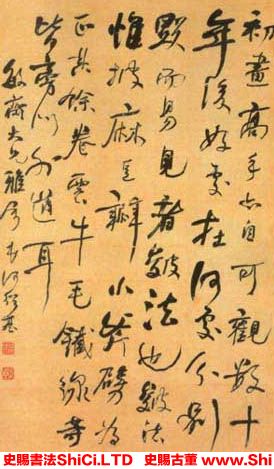 初畫高手亦自可觀數十
年後好處在何處分別
顯而易見者皴法也皴法
惟披麻豆瓣小斧劈為
正其餘卷雲牛毛鐵線等
皆旁門外道耳
敏齋大兄雅屬 何紹基
史賜書法ShiCi.LTD 史賜古董 www.ShiSi